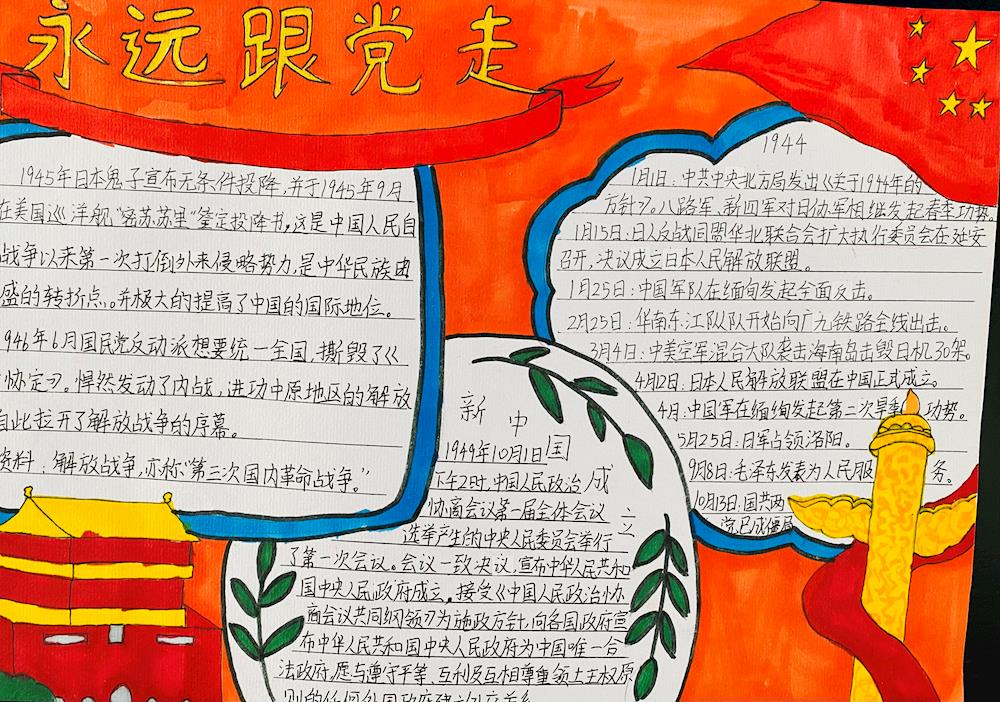 永远跟党走
1945年日本鬼子宣布无条件投降,并于1945年9月
在美国巡洋舰"密苏苏里"签定投降书,这是中国人民自
战争以来第一次打倒外来侵略势力,是中华民族由
盛的转折点。并极大的提高了中国的国际地位。
946年6月国民党反动派想要统一全国,撕毁了《
协定》。悍然发动了内战,进功中原地区的解放
自此拉开了解放战争的序幕。
资料:解放战争,亦称"第三次国内革命战争。"
1944
1月1日:中共中央北方局发出《关于1944年的
方针》。八路军、新四军对日伪军相继发起春季功势。
1月15日:日人反战同盟华北联合会扩大执行委员会在延安
召开,决议成立日本人民解放联盟。
1月25日:中国军队在缅甸发起全面反击。
2月25日:华南东江队队开始向广九铁路全线出击。
3月4日:中美空军混合大队袭击海南岛击毁日机30架。
4月12日:日本人民解放联盟在中国正式成立。
4月:中国军在缅甸发起第二次旱季功势。
5月25日:日军占领洛阳。
9月8日:毛泽东发表为人民服务。
10月13日:国共两
党已成僵局
新中国成立
1949年10月1日
下午2时,中国人民政治
协商会议第一届全体会议
选举产生的中央人民委员会举行
了第一次会议。会议一致决议,宣布中华人民共和
国中央人民政府成立。接受《中国人民政治协
商会议共同纲领》为施政方针,向各国政府宣
布中华人民共和国中央人民政府为中国唯一合
法政府,愿与遵守平等、互利及互相尊重领土主权原
则的任何外国政府建立外交关系